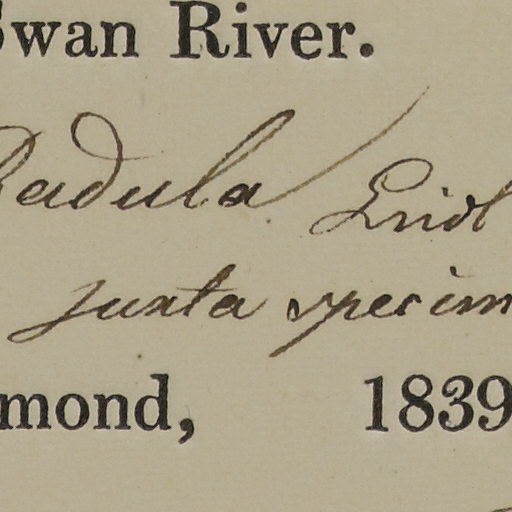 Swan River.
Radula Lindl
juxta specim
mond, 1839